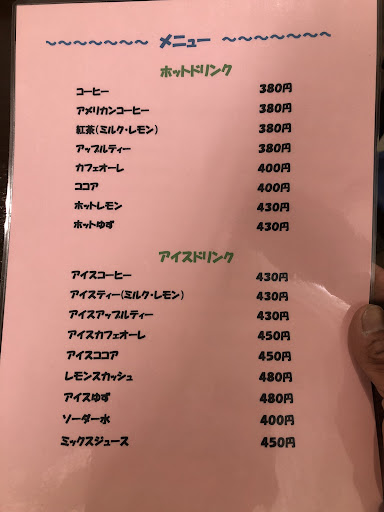 ～～～～～～～ メニュー ～～～～～～～
ホットドリンク
コーヒー 380円
アメリカンコーヒー 380円
紅茶(ミルク・レモン) 380円
アップルティー 380円
カフェオーレ 400円
ココア 400円
ホットレモン 430円
ホットゆず 430円
アイスドリンク
アイスコーヒー 430円
アイスティー(ミルク・レモン) 430円
アイスアップルティー 430円
アイスカフェオーレ 450円
アイスココア 450円
レモンスカッシュ 480円
アイスゆず 480円
ソーダー水 400円
ミックスジュース 450円